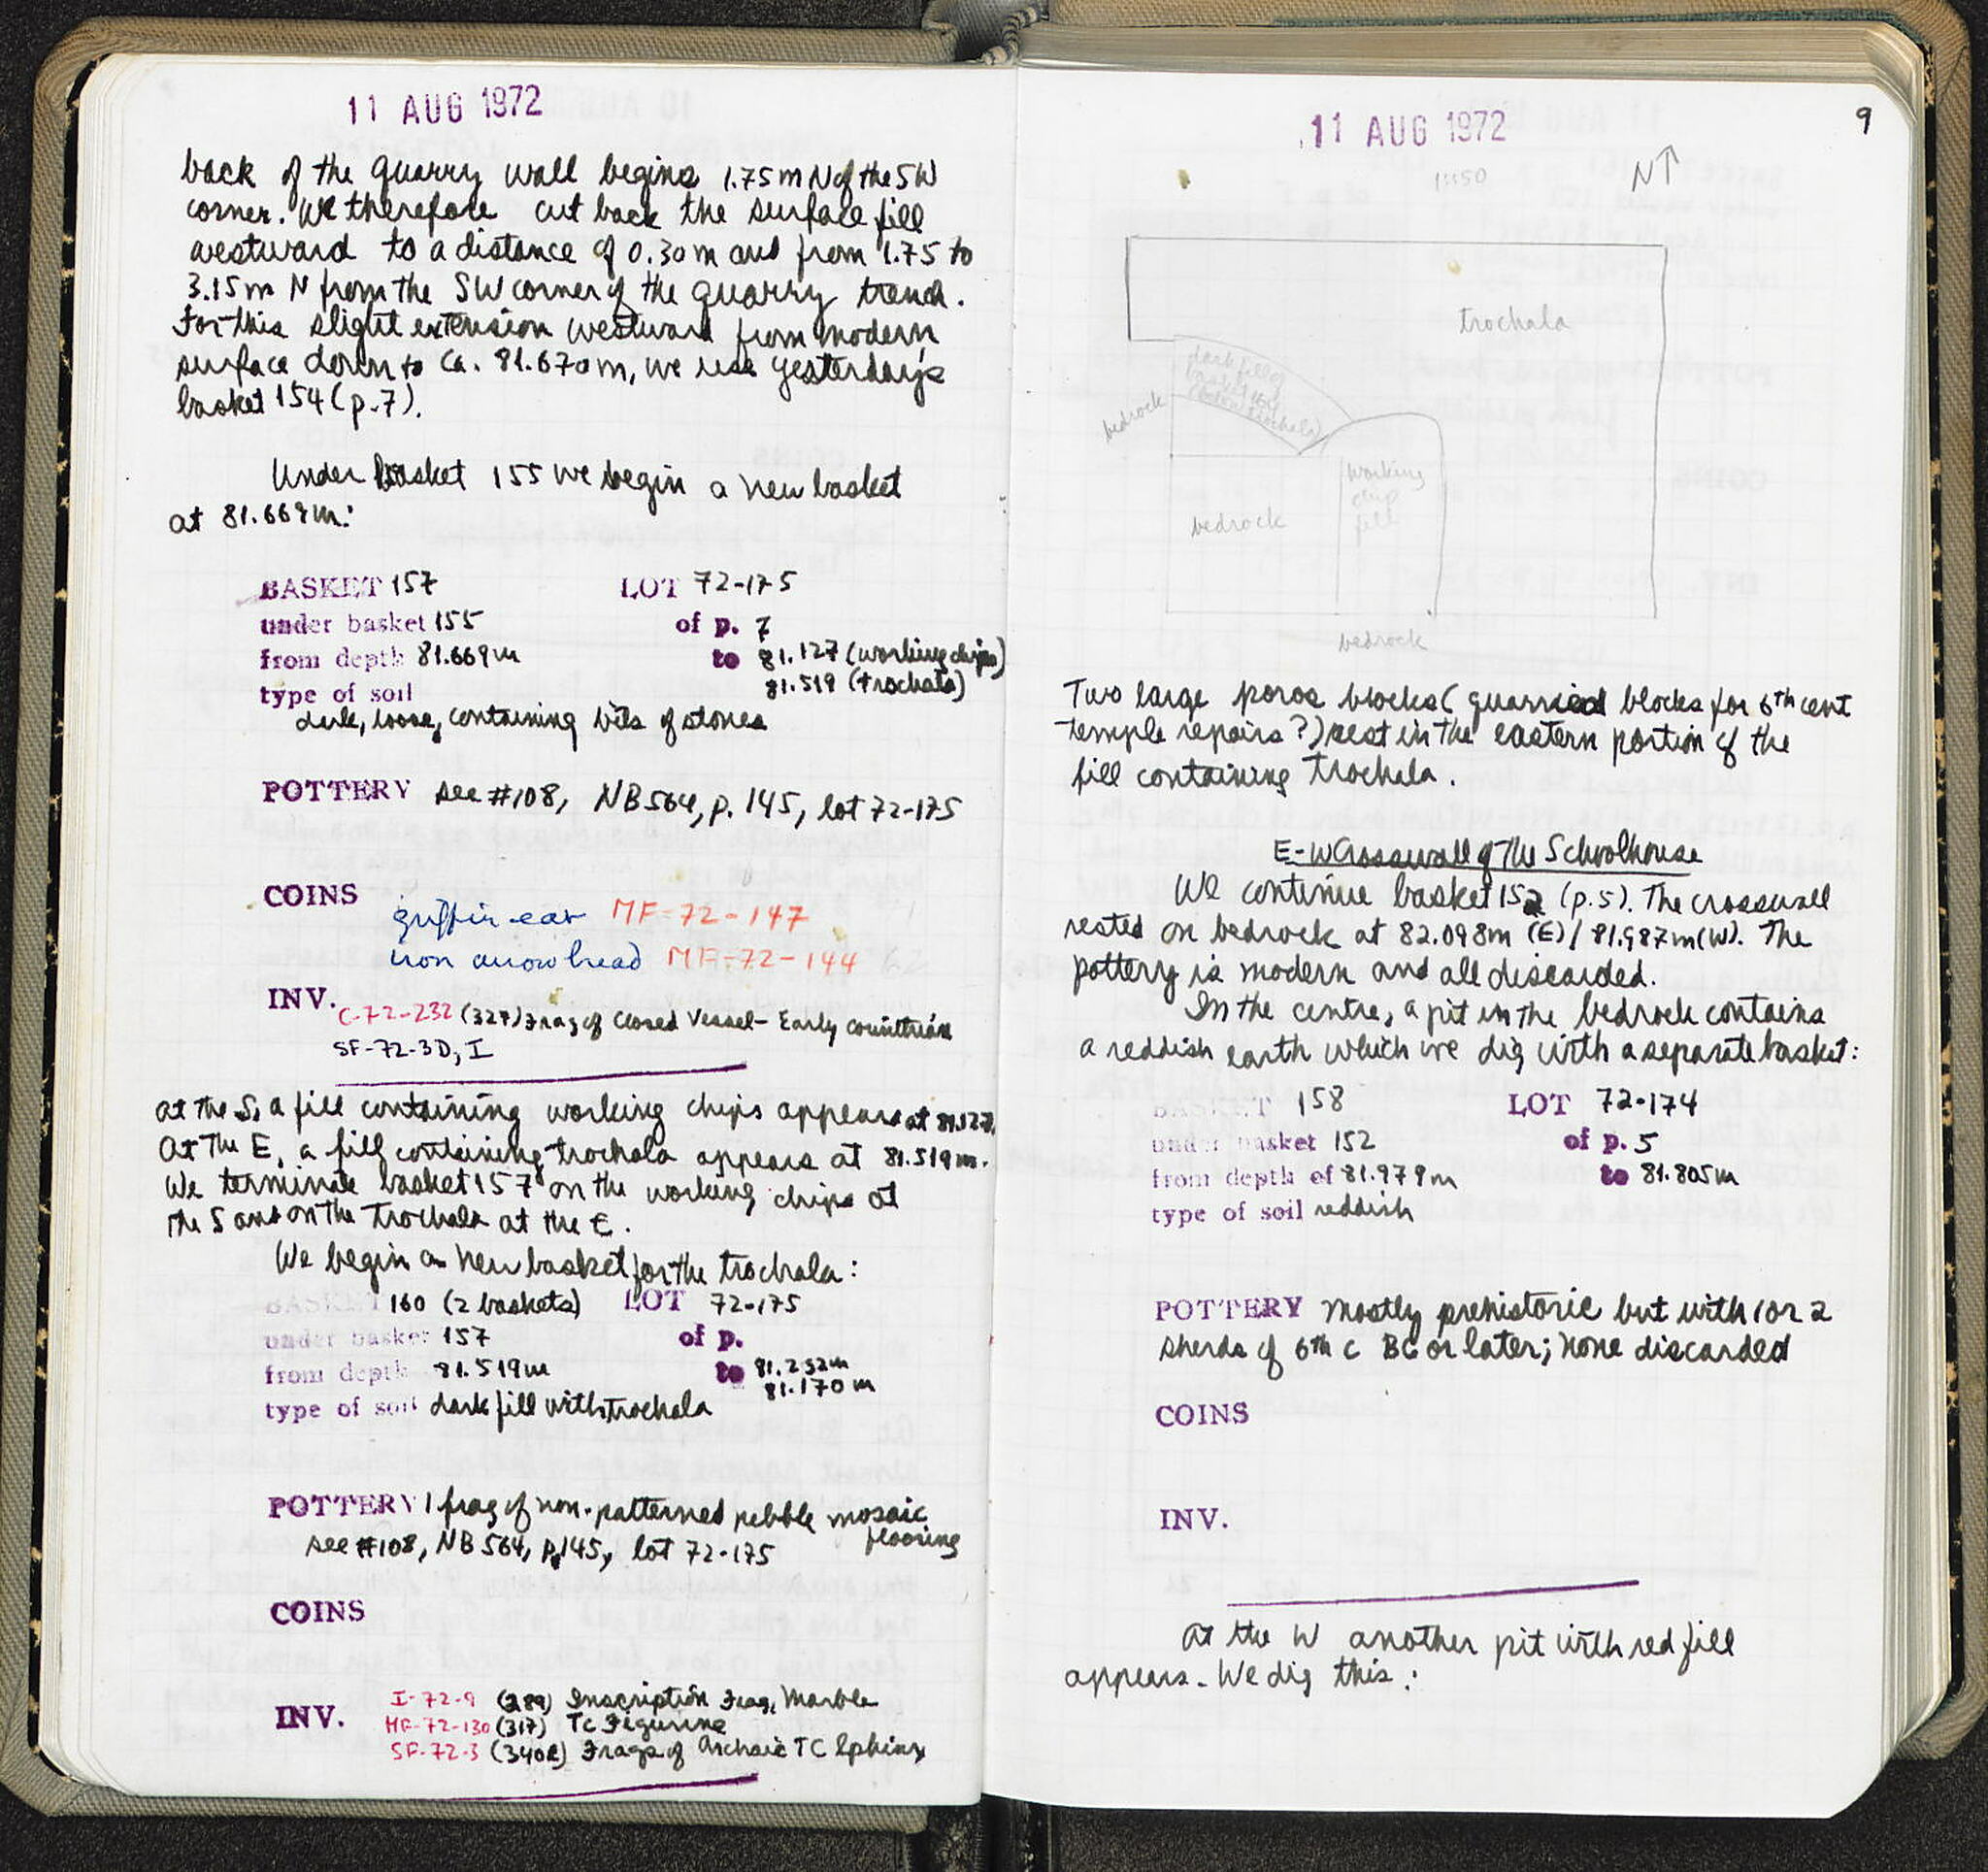 11 AUG 1972
back of the quarry wall begins 1.75 m N of the SW
corner. We therefore cut back the surface fill
westward to a distance of 0.30 m and from 1.75 to
3.15 m N from the SW corner of the quarry trench.
For this slight extension westward from modern
surface down to ca. 81.670 m, we use yesterday's
basket 154 (p.7).
Under basket 155 we begin a new basket
at 81.669 m:
BASKET 157 LOT 72-175
under basket 155 of p. 7
from depth 81.669 m to 81.127 (working chips)
type of soil 81.519 (trochala)
dark, loose, containing bits of stones
POTTERY see #108, NB 564, p. 145, lot 72-175
COINS
griffin ear MF-72-147
iron arrowhead MF-72-144
INV. C-72-232 (327) Frag of Closed Vessel - Early Corinthian
SF-72-3D, I
At the S, a fill containing working chips appears at 81.127.
At the E, a fill containing trochala appears at 81.519 m.
We terminate basket 157 on the working chips at
the S and on the trochala at the E.
We begin a new basket for the trochala:
BASKET 160 (2 baskets) LOT 72-175
under basket 157 of p.
from depth 81.519 m to 81.232 m
81.170 m
type of soil dark fill with trochala
POTTERY 1 frag of non-patterned pebble mosaic
flooring
see #108, NB 564, p. 145, lot 72-175
COINS
INV. I-72-9 (289) Inscription Frag, Marble
MF-72-130 (317) TC Figurine
SF-72-3 (340) Frags of Archaic TC Sphinx
9
11 AUG 1972
1:50 N↑
trochala
dark fill of
bedrock
working
chip
fill
bedrock
bedrock
Two large poros blocks (quarried blocks for 6th cent
temple repairs?) rest in the eastern portion of the
fill containing trochala.
E-W Crosswall of the Schoolhouse
We continue basket 152 (p.5). The crosswall
rested on bedrock at 82.098m (E) / 81.987m (W). The
pottery is modern and all discarded.
In the centre, a pit in the bedrock contains
a reddish earth which we dig with a separate basket:
BASKET 158 LOT 72-174
under basket 152 of p. 5
from depth of 81.979 m to 81.805 m
type of soil reddish
POTTERY Mostly prehistoric but with 1 or 2
sherds of 6th c BC or later; none discarded
COINS
INV.
At the W another pit with red fill
appears. We dig this: